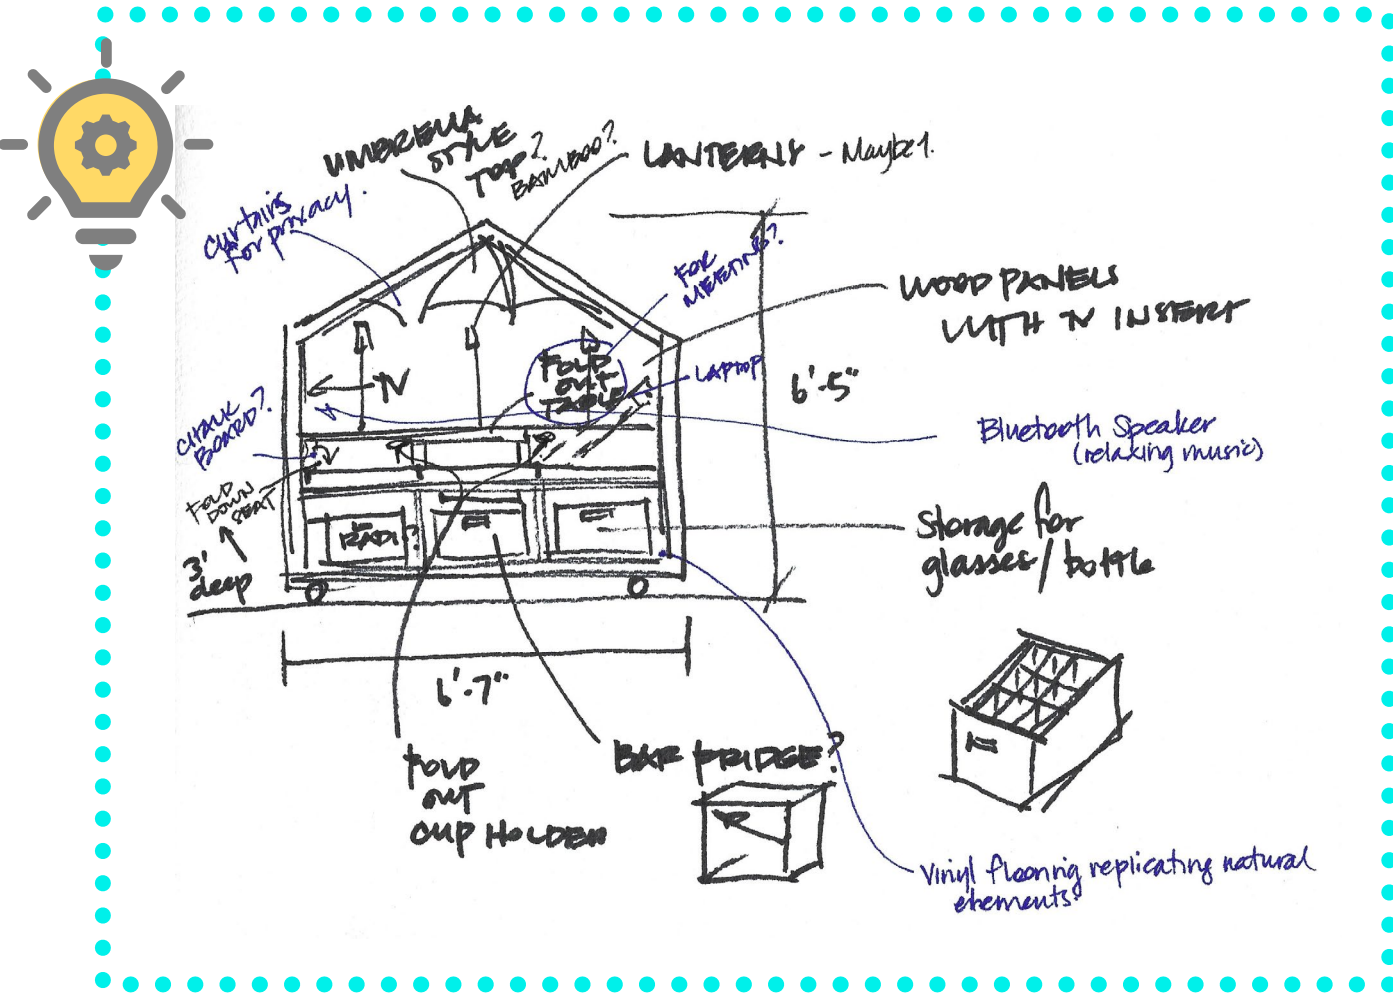 UMBRELLA
STYLE
TOP?
BAMBOO?
LANTERNS - Maybe 1.
curtains
for privacy.
FOR
MEETING?
WOOD PANELS
WITH TV INSERT
FOLD
OUT
TABLE
TV
LAPTOP
6'-5"
CHALK
BOARD?
Bluetooth Speaker
(relaxing music)
FOLD
DOWN
SEAT
3'
deep
RADI?
Storage for
glasses/bottle
6'-7"
FOLD
OUT
CUP HOLDER
BAR FRIDGE?
Vinyl flooring replicating natural
elements?